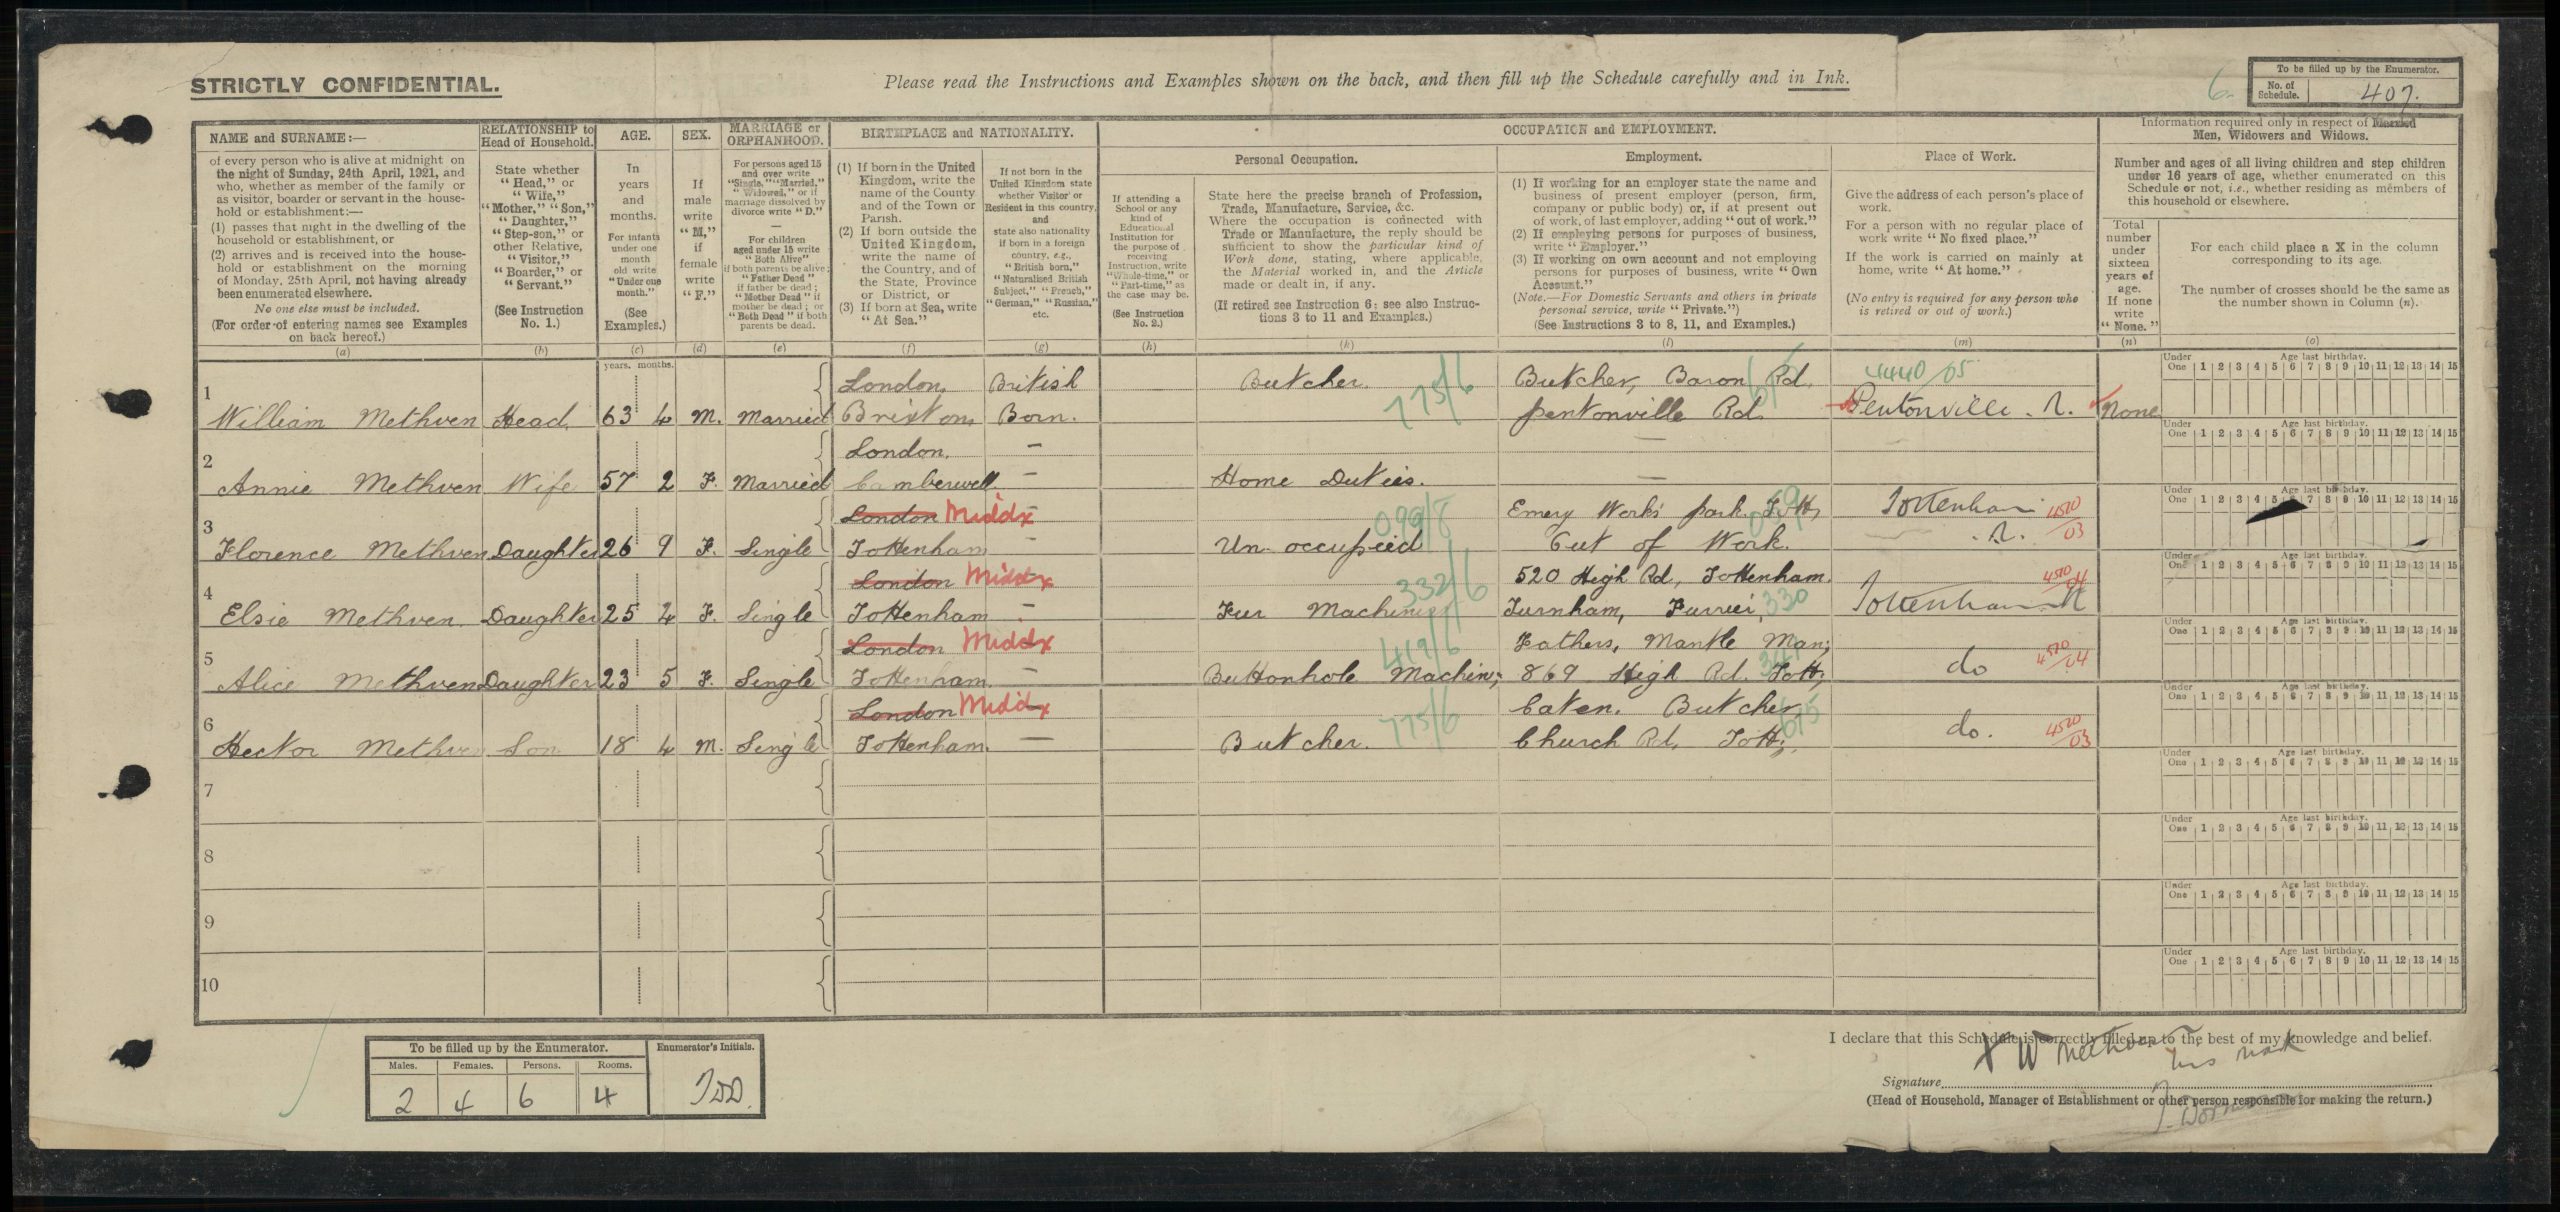 STRICTLY CONFIDENTIAL.
Please read the Instructions and Examples shown on the back, and then fill up the Schedule carefully and in Ink.
6
To be filled up by the Enumerator.
No. of Schedule. 407.
NAME and SURNAME:—
of every person who is alive at midnight on
the night of Sunday, 24th April, 1921, and
who, whether as member of the family or
as visitor, boarder or servant in the house-
hold or establishment:—
(1) passes that night in the dwelling of the
household or establishment, or
(2) arrives and is received into the house-
hold or establishment on the morning
of Monday, 25th April, not having already
been enumerated elsewhere.
No one else must be included.
(For order of entering names see Examples
on back hereof.)
(a)
RELATIONSHIP to
Head of Household.
State whether
"Head," or
"Wife,"
"Mother," "Son,"
"Daughter,"
"Step-son," or
other Relative,
"Visitor,"
"Boarder," or
"Servant."
(See Instruction
No. 1.)
(b)
AGE.
In
years
and
months.
For infants
under one
month
old write
"Under one
month."
(See
Examples.)
(c)
SEX.
If
male
write
"M,"
if
female
write
"F."
(d)
MARRIAGE or
ORPHANHOOD.
For persons aged 15
and over write
"Single," "Married,"
"Widowed," or if
marriage dissolved by
divorce write "D."
—
For children
aged under 15 write
"Both Alive"
if both parents be alive;
"Father Dead"
if father be dead;
"Mother Dead" if
mother be dead; or
"Both Dead" if both
parents be dead.
(e)
BIRTHPLACE and NATIONALITY.
(1) If born in the United
Kingdom, write the
name of the County
and of the Town or
Parish.
(2) If born outside the
United Kingdom,
write the name of
the Country, and of
the State, Province
or District, or
(3) If born at Sea, write
"At Sea."
(f)
If not born in the
United Kingdom state
whether Visitor or
Resident in this country,
and
state also nationality
if born in a foreign
country, e.g.,
"British born,"
"Naturalised British
Subject," "French,"
"German," "Russian,"
etc.
(g)
OCCUPATION and EMPLOYMENT.
Personal Occupation.
If attending a
School or any
kind of
Educational
Institution for
the purpose of
receiving
Instruction, write
"Whole-time," or
"Part-time," as
the case may be.
(See Instruction
No. 2.)
(h)
State here the precise branch of Profession,
Trade, Manufacture, Service, &c.
Where the occupation is connected with
Trade or Manufacture, the reply should be
sufficient to show the particular kind of
Work done, stating, where applicable,
the Material worked in, and the Article
made or dealt in, if any.
(If retired see Instruction 6: see also Instruc-
tions 3 to 11 and Examples.)
(k)
Employment.
(1) If working for an employer state the name and
business of present employer (person, firm,
company or public body) or, if at present out
of work, of last employer, adding "out of work."
(2) If employing persons for purposes of business,
write "Employer."
(3) If working on own account and not employing
persons for purposes of business, write "Own
Account."
(Note.—For Domestic Servants and others in private
personal service, write "Private.")
(See Instructions 3 to 8, 11, and Examples.)
(l)
Place of Work.
Give the address of each person's place of
work.
For a person with no regular place of
work write "No fixed place."
If the work is carried on mainly at
home, write "At home."
(No entry is required for any person who
is retired or out of work.)
(m)
Information required only in respect of Married
Men, Widowers and Widows.
Number and ages of all living children and step children
under 16 years of age, whether enumerated on this
Schedule or not, i.e., whether residing as members of
this household or elsewhere.
Total
number
under
sixteen
years of
age.
If none
write
"None."
(n)
For each child place a X in the column
corresponding to its age.
The number of crosses should be the same as
the number shown in Column (n).
(o)
years. months.
Under One Age last birthday. 1 2 3 4 5 6 7 8 9 10 11 12 13 14 15
London, British Butcher. 775/6 Butcher, Baron Rd. 4440/05
1 William Methven Head. 63 4 M. Married Brixton, Born. pentonville Rd Pentonville. N. None
Under One Age last birthday. 1 2 3 4 5 6 7 8 9 10 11 12 13 14 15
London. — —
2 Annie Methven Wife 57 2 F. Married Camberwell. — Home Duties. —
Under One Age last birthday. 1 2 3 4 5 6 7 8 9 10 11 12 13 14 15
London Middx — 099/8 Emery Works park Tott, Tottenham 4520/03
3 Florence Methven Daughter 26 9 F. Single Tottenham — Un-occupied Out of Work. N.
Under One Age last birthday. 1 2 3 4 5 6 7 8 9 10 11 12 13 14 15
London Middx — 332/6 520 High Rd, Tottenham. 4520/04
4 Elsie Methven. Daughter 25 4 F. Single Tottenham — Fur Machinist Turnham, Furrier, 330 Tottenham N
Under One Age last birthday. 1 2 3 4 5 6 7 8 9 10 11 12 13 14 15
London Middx 419/6 Fathers, Mantle Man;
5 Alice Methven Daughter 23 5 F. Single Tottenham. — Buttonhole Machin; 869 High Rd. Tott; do 4520/04
Under One Age last birthday. 1 2 3 4 5 6 7 8 9 10 11 12 13 14 15
London Middx — 775/6 Caten. Butcher,
6 Hector Methven Son 18 4 M. Single Tottenham. — Butcher. Church Rd, Tott; do. 4520/03
Under One Age last birthday. 1 2 3 4 5 6 7 8 9 10 11 12 13 14 15
7
Under One Age last birthday. 1 2 3 4 5 6 7 8 9 10 11 12 13 14 15
8
Under One Age last birthday. 1 2 3 4 5 6 7 8 9 10 11 12 13 14 15
9
Under One Age last birthday. 1 2 3 4 5 6 7 8 9 10 11 12 13 14 15
10
To be filled up by the Enumerator. Enumerator's Initials.
Males. Females. Persons. Rooms.
2 4 6 4
I declare that this Schedule is correctly filled up to the best of my knowledge and belief.
X W Methven
his mark
Signature
(Head of Household, Manager of Establishment or other person responsible for making the return.)